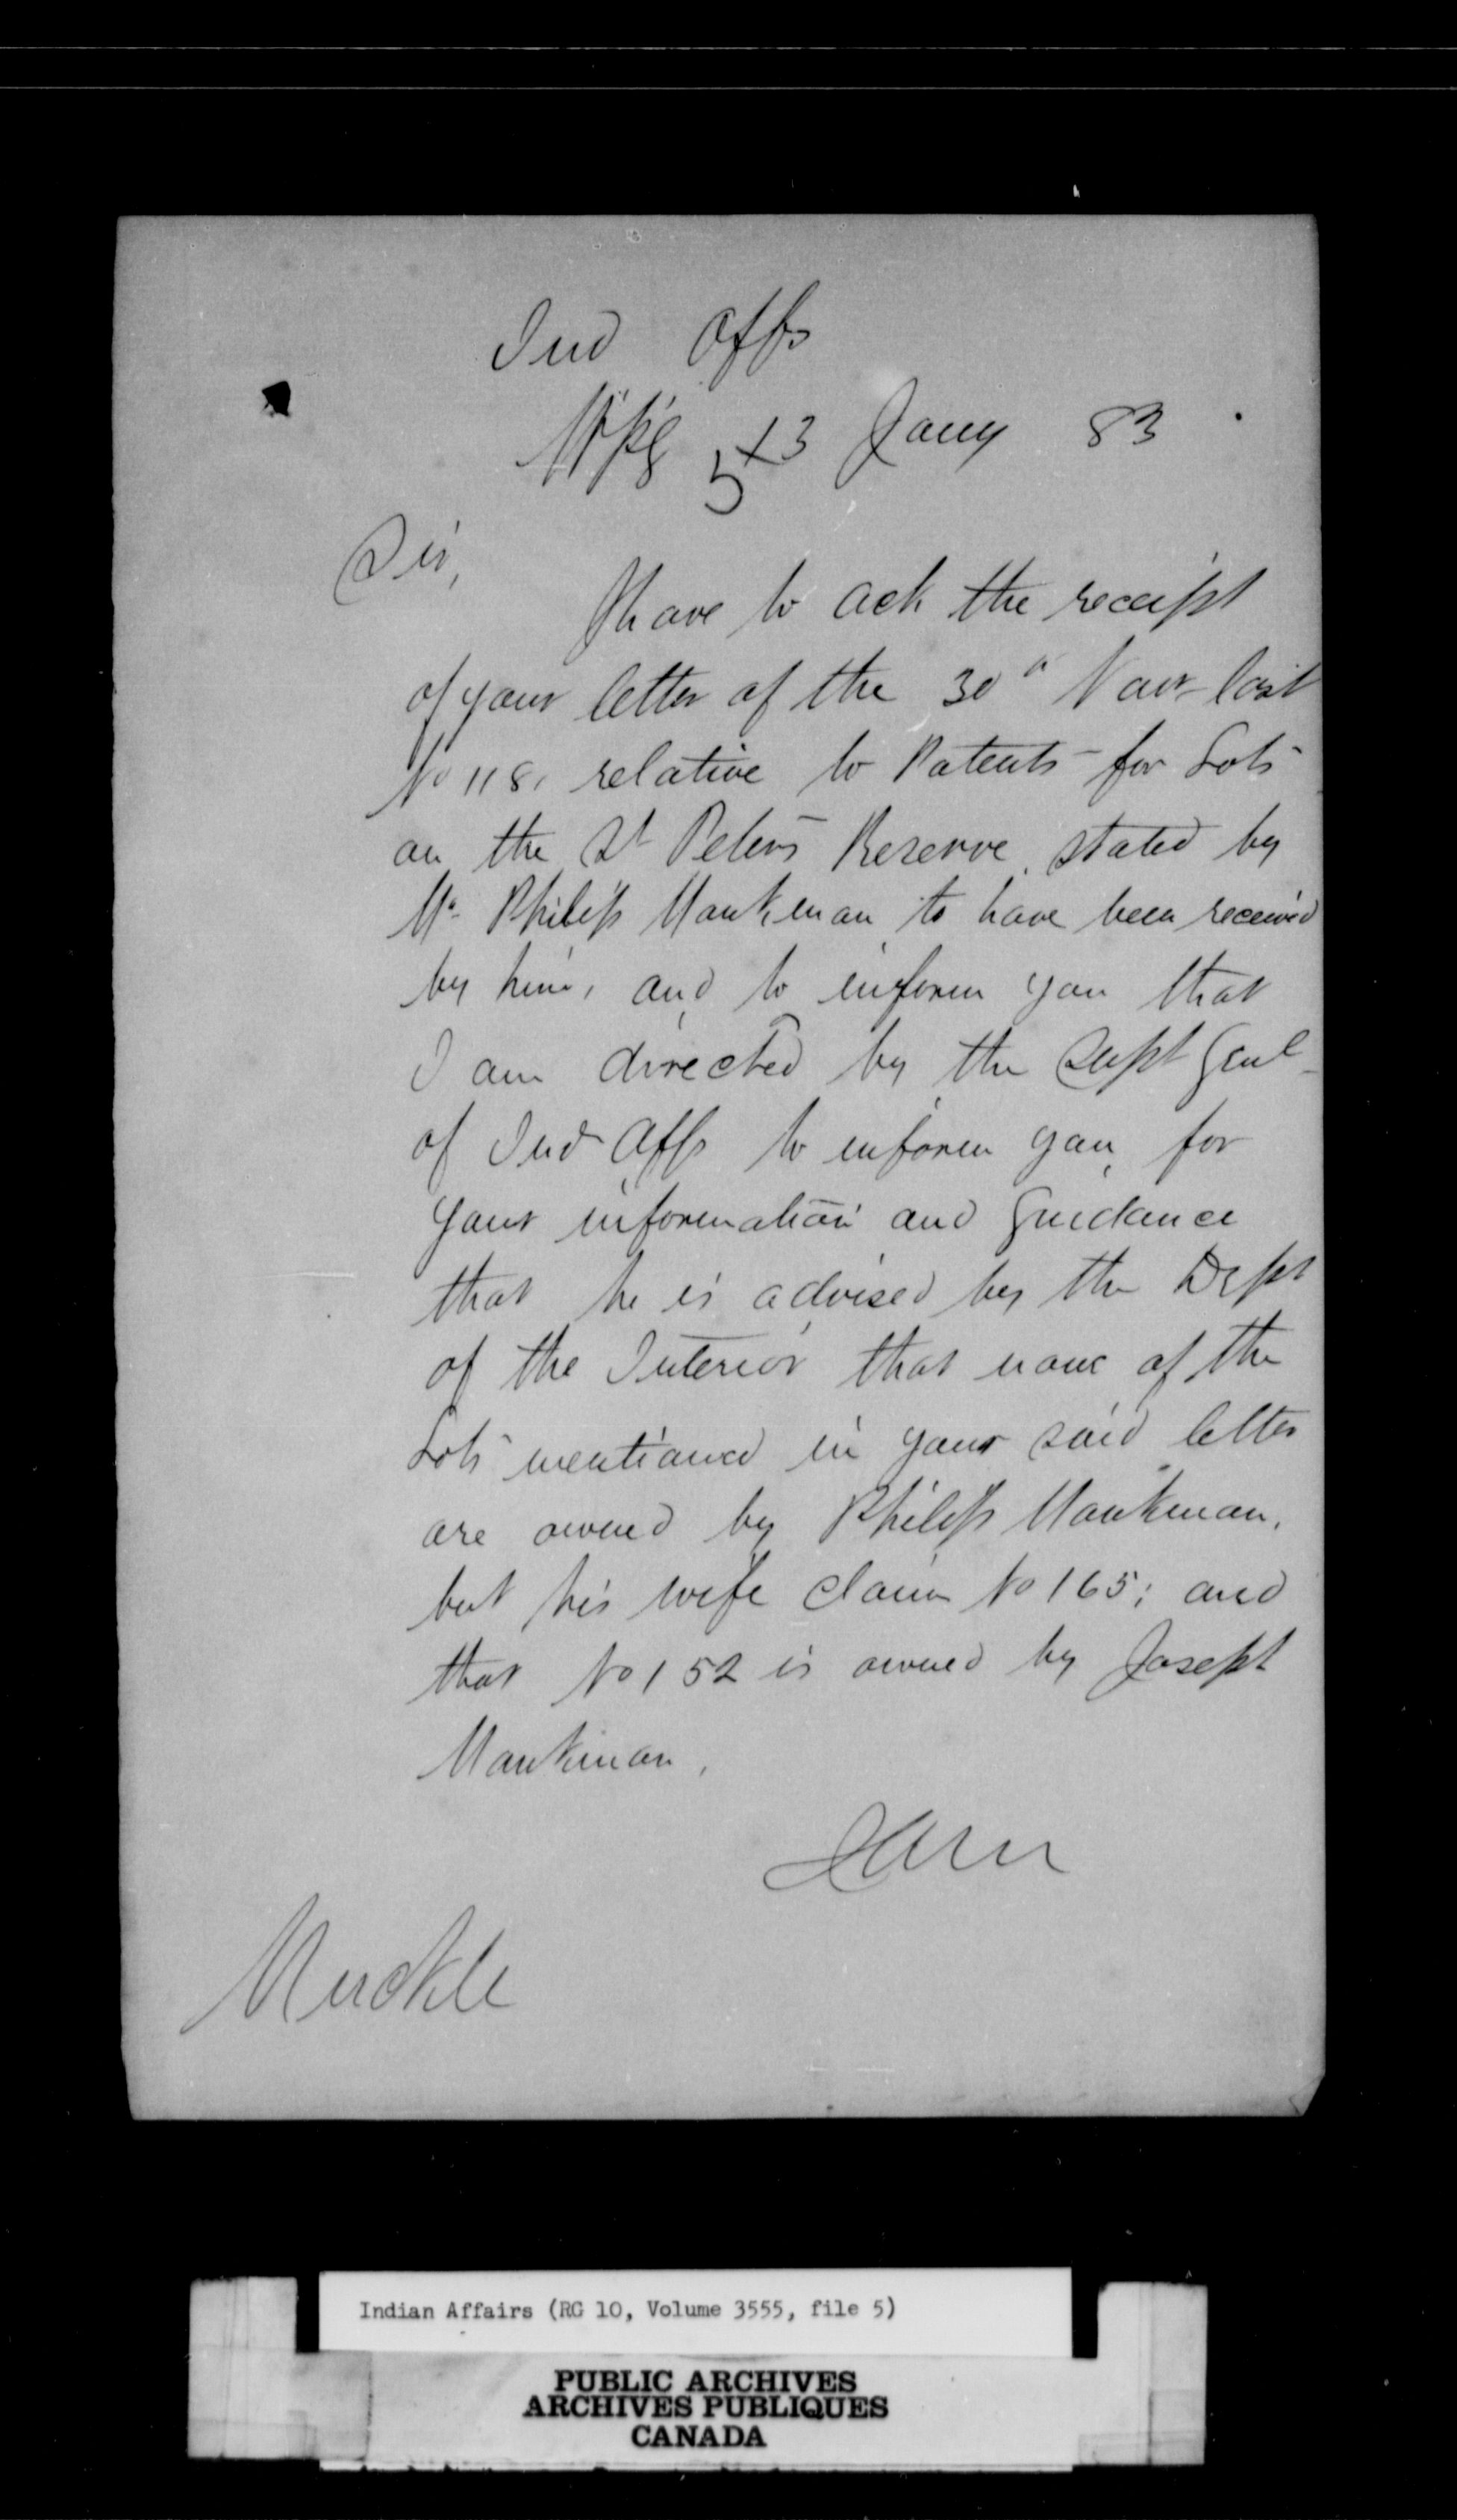 Ind Affs
Wpg 13 Jany 83
5
Sir,
I have to ack the receipt
of your letter of the 30th Novr last
No 118, relative to Patents for Lots
on the St Peters Reserve, stated by
Mr Philip Mankman to have been received
by him, and to inform you that
I am directed by the Supt Genl
of Ind Affs to inform you, for
your information and Guidance
that he is advised by the Dept
of the Interior that none of the
Lots mentioned in your said letter
are owned by Philip Mankman,
but his wife claim No 165; and
that No 152 is owned by Joseph
Mankman,
Muckle
Indian Affairs (RG 10, Volume 3555, file 5)
PUBLIC ARCHIVES
ARCHIVES PUBLIQUES
CANADA